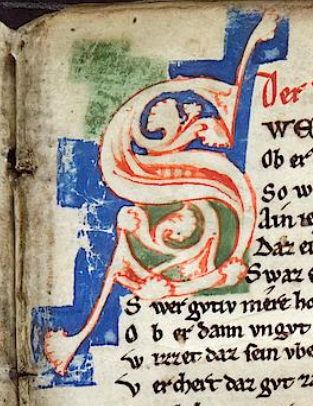 S
Der
WE
Ob er
So w
Ain
Daz
Swaz
S wer gvtiv mere ho
O b er dann vngvt
w irret daz sein vbe
v ercheit daz gvt